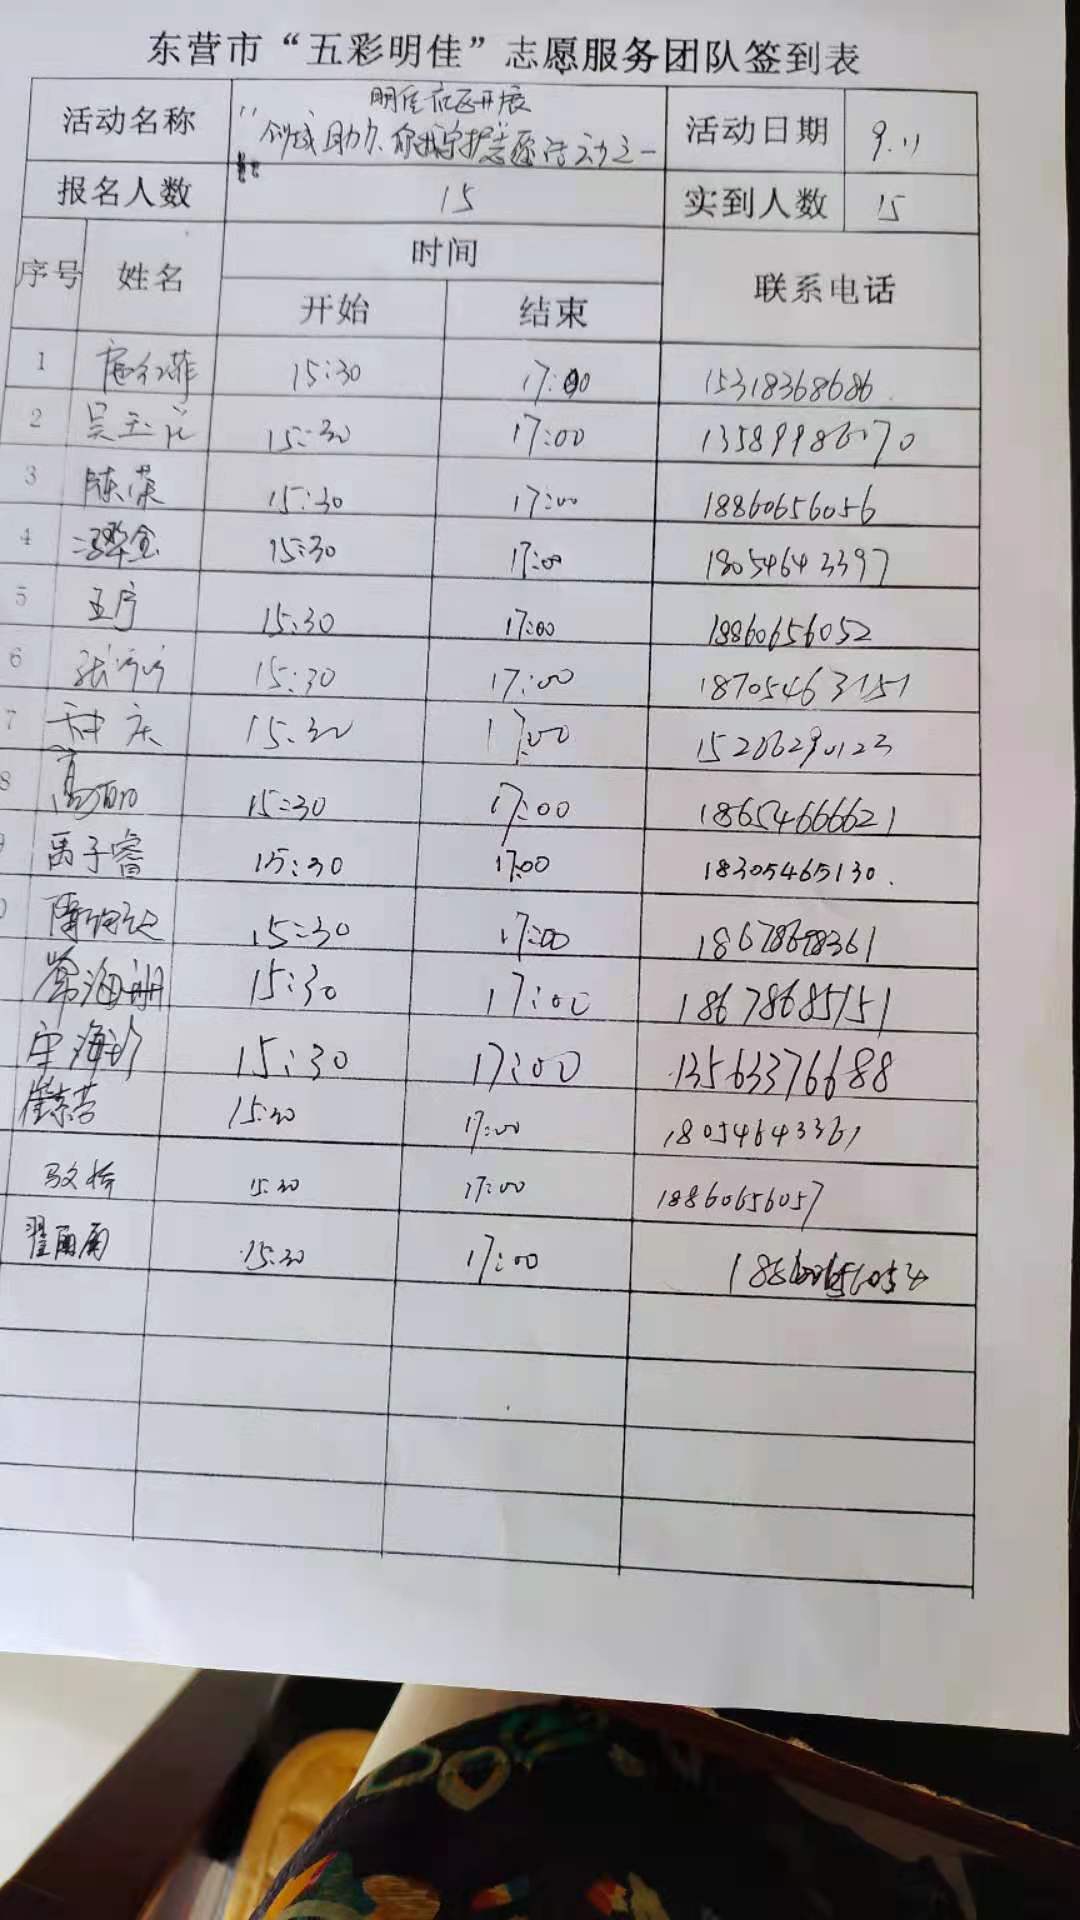 东营市“五彩明佳”志愿服务团队签到表
活动名称 明佳社区开展 活动日期 9.11
“创城助力、你我守护”志愿活动之一
报名人数 15 实到人数 15
序号 姓名 时间 联系电话
开始 结束
1 15:30 17:00 15318368686
2 吴玉 15:30 17:00
3 陈荣 15:30 17:00 18860656056
4 15:30 17:00 18054643397
5 王宁 15:30 17:00 18860656052
6 张 15:30 17:00 18705463151
7 庆 15:30 17:00 15206290123
8 高 15:30 17:00 18654666621
禹子睿 15:30 17:00 18305465130.
隋 15:30 17:00
常海册 15:30 17:00 18678685151
宁海珍 15:30 17:00 13563376688
崔东营 15:30 17:00 18054643361
15:30 17:00 18860656057
翟雨 15:30 17:00